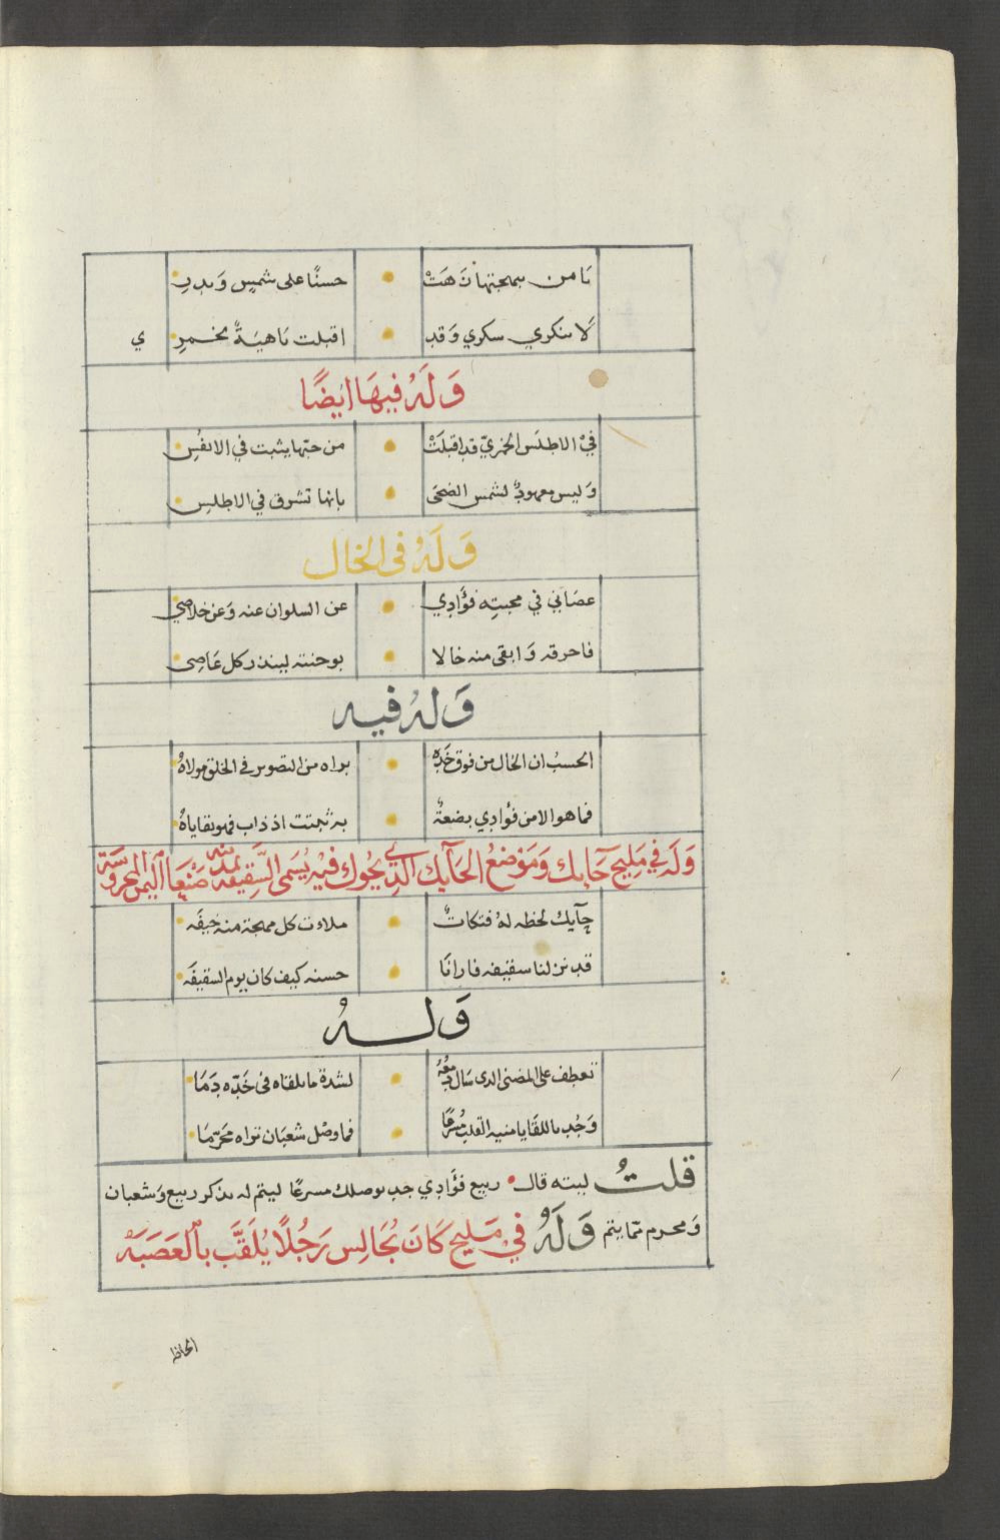 يا من ببهجتها زهت حسنًا على شمس وبدر
لا تنكري سكري وقد اقبلت ناهية بخمر ي
وَلَهُ فيهَا ايضًا
في الاطلس الخمري قد اقبلت من حبّها يثبت في الانفس
وليس معهود لشمس الضحى بانها تشرق في الاطلس
وَلَهُ فى الخال
عصاني في محبته فؤادي عن السلوان عنه وعن خلاصي
فاحرقه وابقى منه خالا بوجنته لينذر كل عاصى
وَلهُ فيه
اتحسب ان الخال من فوق خَدِّهِ براه من التصوير في الخلق مولاهُ
فما هو الا من فؤادي بضعة به ثبتت اذ ذاب فهو بقاياهُ
وَلَهُ فِي مَلِيح حَايك وَمَوْضعُ الحَآيك الَّذي يحُوك فيْهِ يُسَمى السَّقِيفه بمدينه صَنْعَا اليمن المحروسَة
حآيك لحظه لهُ فتكات ملاءت كل مهجة منه خيفَه
قد نزلنا سقيفه فارانا حسنه كيف كان يوم السقيفَه
وَلــهُ
تعطف على المضنى الذى سَال دمْعُهُ لشدة ما يلقاه فى خَدّه دَمَا
وَجُد باللقَا يا منية القلب مُسْرعًا فما وصْل شعبَان تراه محَرّمَا
قلتُ ليته قال ربيع فؤادي جد بوصلك مسرعًا ليتم له بذكر ربيع وَشعبان
وَمحرم مما يتم وَلَهُ فِيْ مَليح كَانَ يُجَالِس رَجُلًا يُلَقَّب بالعَصَبَه
الحاظ